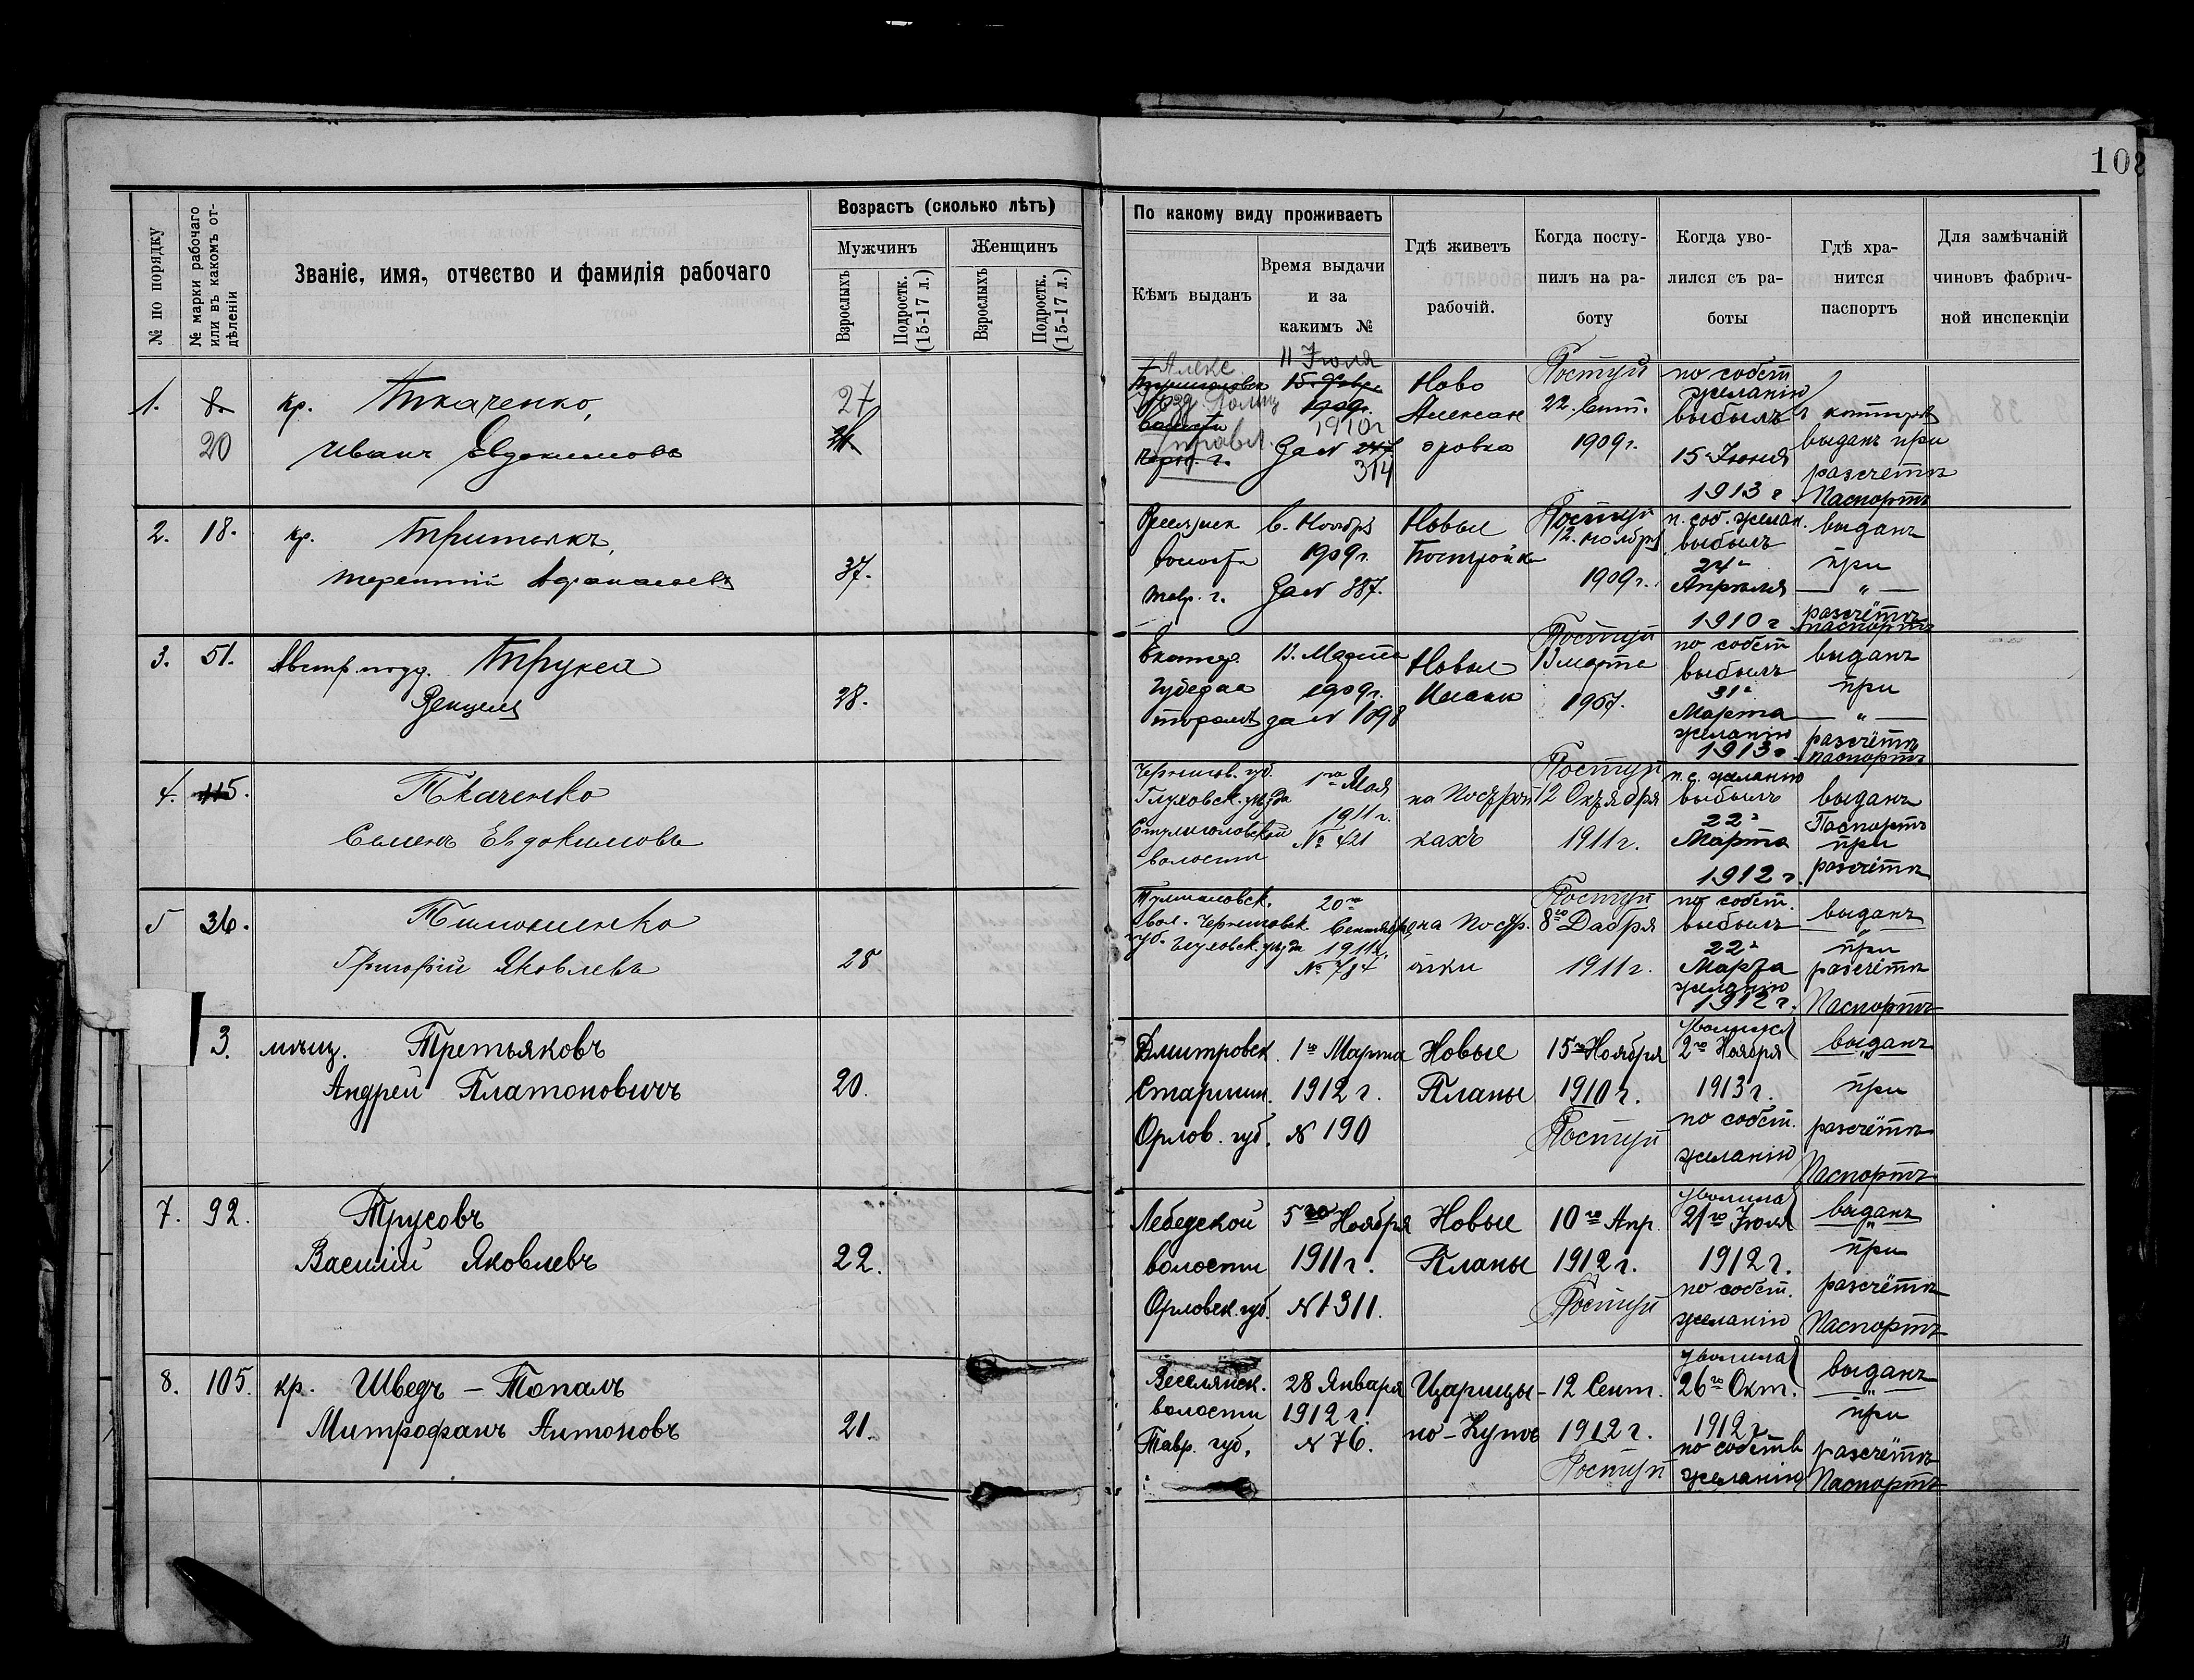 108
№ по порядку
№ марки рабочаго или въ какомъ от-дѣленіи
Званіе, имя, отчество и фамилія рабочаго
Возрастъ (сколько лѣтъ)
Мужчинъ
Женщинъ
Взрослыхъ
Подростк. (15-17 л.)
Взрослыхъ
Подростк. (15-17 л.)
По какому виду проживаетъ
Кѣмъ выданъ
Время выдачи
и за
какимъ №
Гдѣ живетъ
рабочій.
Когда посту-
пилъ на ра-
боту
Когда уво-
лился съ ра-
боты
Гдѣ хра-
нится
паспортъ
Для замѣчаній
чиновъ фабрич-
ной инспекціи
1.
8.
20
кр. Ткаченко,
Иванъ Евдокимовъ
27
Алекс.
11 Іюля
15. Февр.
1909г.
1910г
За №
314
Ново
Алексан
дровка
Поступ
22. Сент.
1909г.
по собст
желанію
выбылъ
15 Іюня
1913 г
выданъ при
разсчетѣ
Паспортъ
2. 18.
кр. Тритякъ,
Терентій Афанасьевъ
37.
волости
Тавр. г.
6. Ноябр
1909г.
За № 387.
Новые
Постройки
Поступ
12. ноября
1909г.
п. соб. желан.
выбылъ
24
Апрѣля
1910 г
выданъ
при
— " —
разсчётѣ
паспортъ
3. 51.
Австр. подд. Трукса
Венцель
28.
Екатер.
Губерна
торомъ
13. Марта
1909г.
за № 1098
Новые
Планы
Поступ
13 марта
1907.
по собст
выбылъ
31
Марта
желанію
1913 г
выданъ
при
— " —
разсчётѣ
паспортъ
4. 115.
Ткаченко
Семенъ Евдокимовъ
Чернигов. губ.
Глуховск. уѣзда
волости
1го Мая
1911 г.
№ 421
на Построй
кахъ
Поступ
12 Октября
1911 г.
п. с. желанію
выбылъ
22
Марта
1912 г.
выданъ
Паспортъ
при
разсчётѣ
5 36.
Тимошенко
Григорій Яковлевъ
28
вол. Черниговск.
губ. Глуховск. уѣзда
20го
Сентября
1911г.
№ 784
на Постр.
ойки
Поступ
8го Дабря
1911 г.
по собст.
выбылъ
22
Марта
желанію
1912 г.
выданъ
"
при
разсчётѣ
Паспортъ
3.
мѣщ. Третьяковъ
Андрей Платоновичъ
20.
Дмитровск.
Старшин.
Орлов. губ.
1го Марта
1912 г.
№ 190
Новые
Планы
15го Ноября
1910 г.
Поступ
Уволился
2го Ноября
1913 г.
по собст.
желанію
выданъ
"
при
разсчётѣ
Паспортъ
7. 92.
Трусовъ
Василій Яковлевъ
22.
Лебедской
волости
Орловск. губ.
5го Ноября
1911 г.
№ 1311.
Новые
Планы
10го Апр.
1912 г.
Поступ
Уволился
21го Іюля
1912 г.
по собст.
желанію
выданъ
"
при
разсчётѣ
Паспортъ
8. 105.
кр. Шведъ – Топалъ
Митрофанъ Антоновъ
21.
Веселянск.
волости
Тавр. губ.
28 Января
1912 г.
№ 76.
Царицы-
но-Кутъ
12 Сент.
1912 г.
Поступ
Уволился
26го Окт.
1912 г.
по собств
желанію
выданъ
"
при
разсчётѣ
Паспортъ